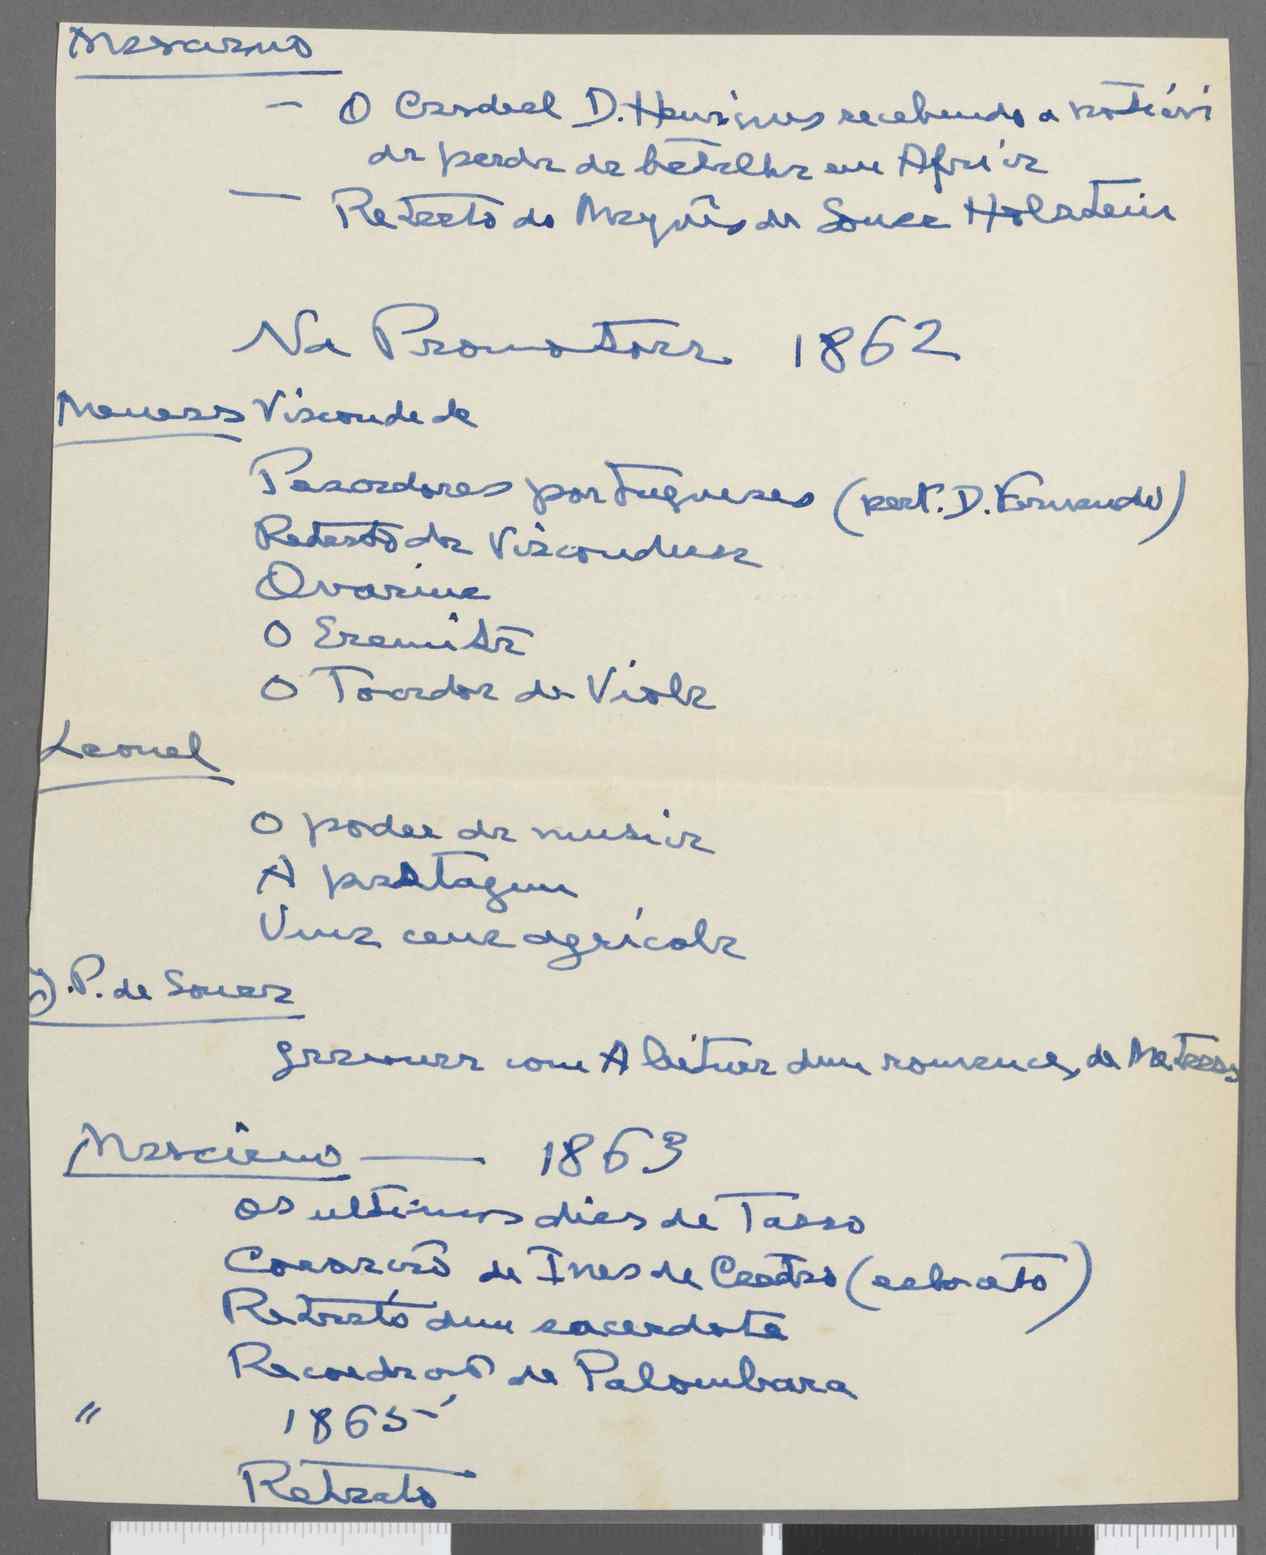 Marciano
— O Cardeal D. Henrique recebendo a notícia
da perda da batalha em Africa
— Retrato do Marquês de Souza Holstein
Na Promotora 1862
Meneses Visconde de
Pescadores portugueses (pert. D. Fernando)
Retrato da Viscondessa
Ovarina
O Eremita
O Tocador de Viola
Leonel
O poder da musica
A
Uma cena agrícola
J. P. de Souza
gravura com A leitura dum romance, de Metrass
Marciano — 1863
Os ultimos dias de Tasso
Coroação de Ines de Castro (esboceto)
Retrato dum sacerdote
Recordação de Palombara
" 1865
Retrato